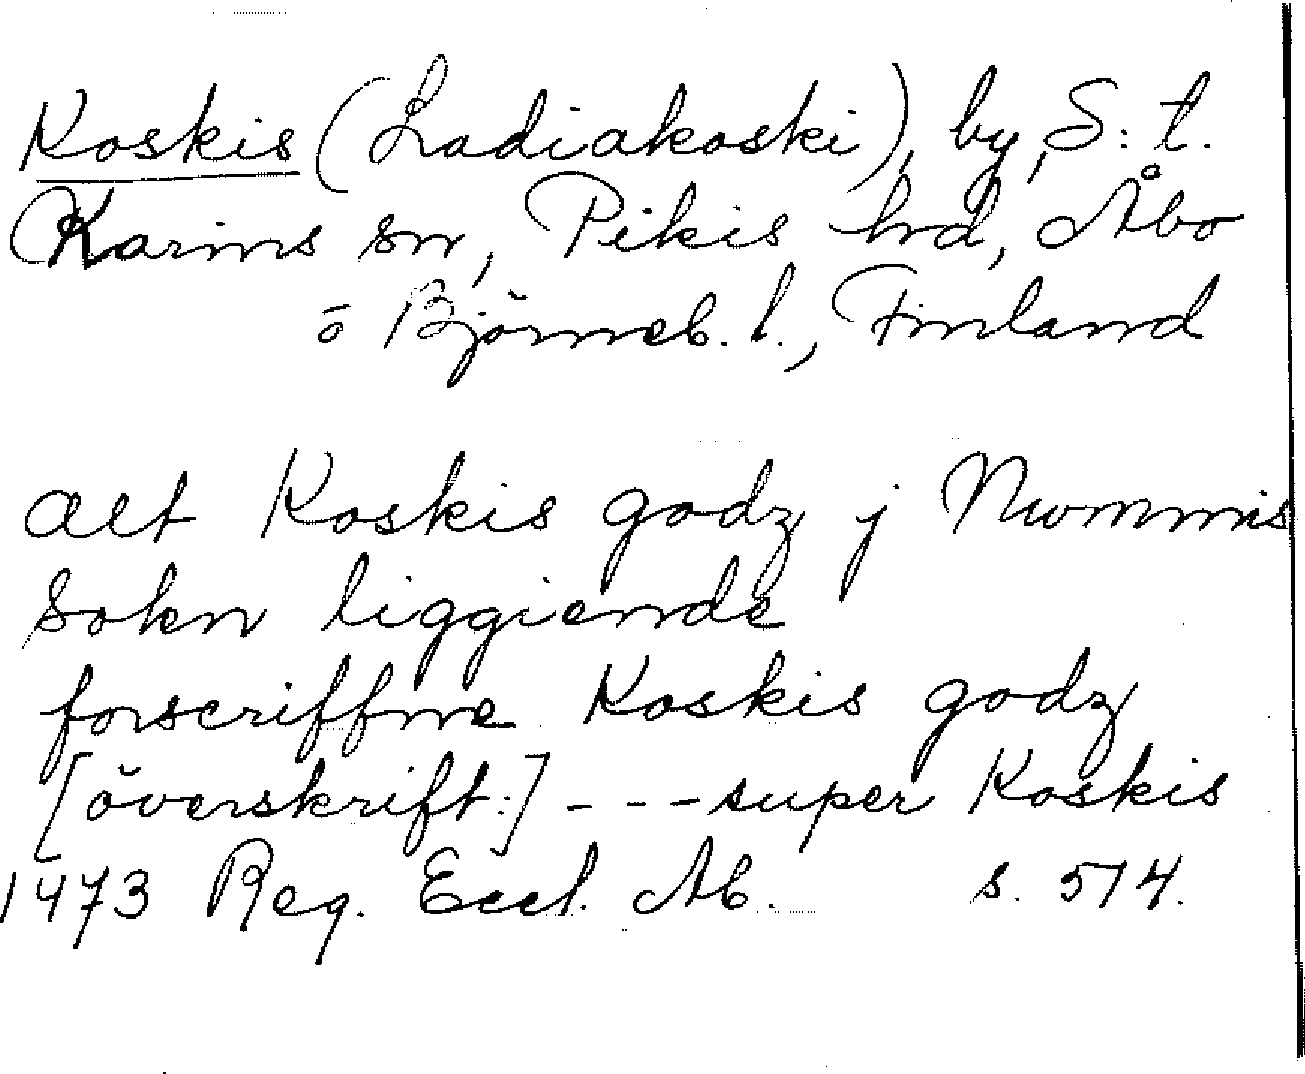 Koskis (Ladiakoski), by, S:t.
Karins sn, Pikis hd, Åbo
o Björneb. l., Finland
alt Koskis godz j Nwmmis
Sokn liggiende
forscriffne Koskis godz
[överskrift:] - - - super Koskis
1473 Reg. Eccl. Ab. s. 514.